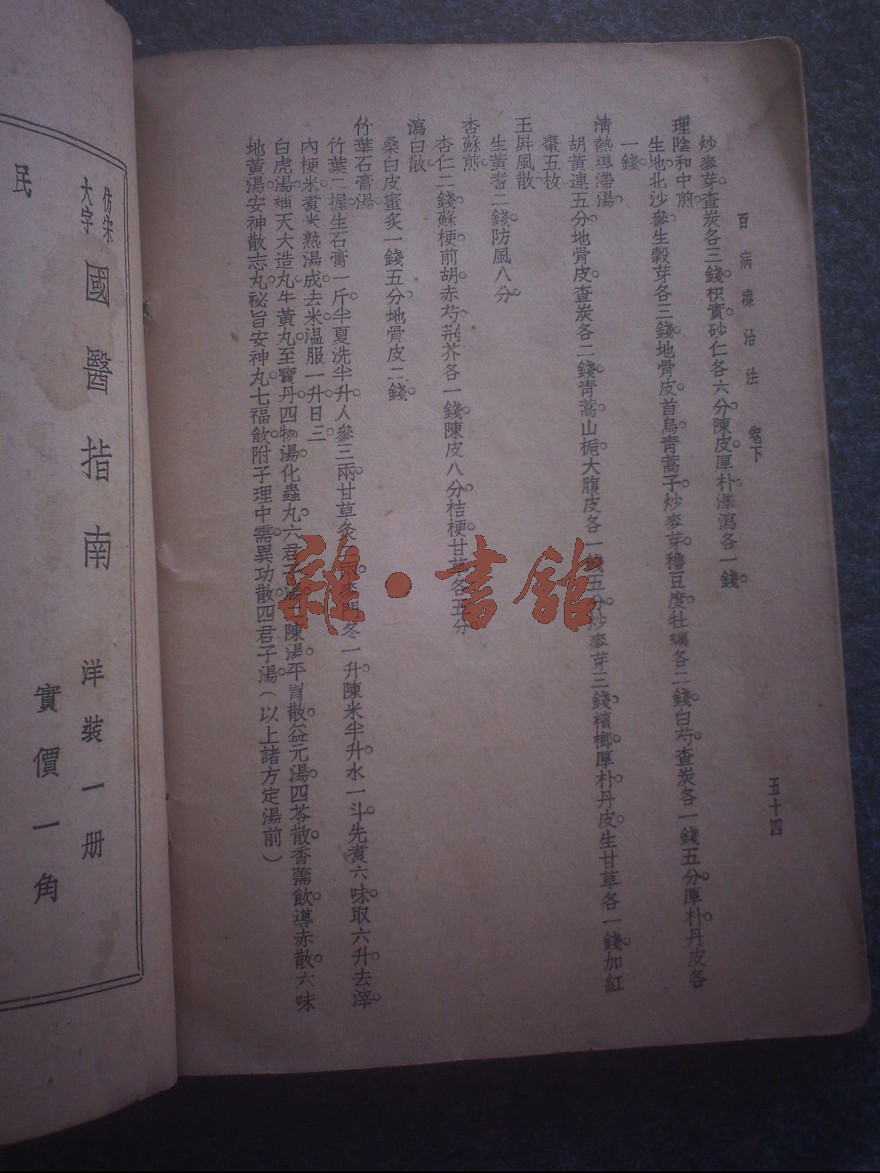 百病療治法 卷下
五十四
炒麥芽查炭各三錢枳實砂仁各六分陳皮厚朴澤瀉各一錢
理陰和中煎
生地北沙參生穀芽各三錢地骨皮首烏青蒿子炒麥芽穭豆皮牡蠣各二錢白芍查炭各一錢五分厚朴丹皮各
一錢
清熱導滯湯
胡黃連五分地骨皮查炭各二錢青蒿山梔大腹皮各一錢五分炒麥芽三錢檳榔厚朴丹皮生甘草各一錢加紅
棗五枚
玉屏風散
生黃耆二錢防風八分
杏蘇煎
杏仁二錢蘇梗前胡赤芍荆芥各一錢陳皮八分桔梗甘草各五分
瀉白散
桑白皮蜜炙一錢五分地骨皮二錢
竹葉石膏湯
竹葉二握生石膏一斤半夏洗半升人參三兩甘草炙 冬一升陳米半升水一斗先煑六味取六升去滓
內梗米煑米熟湯成去米温服一升日三
白虎湯補天大造丸牛黃丸至寶丹四物湯化蟲丸六君子湯 陳湯平胃散益元湯四苓散香薷飲導赤散六味
地黃湯安神散志丸祕旨安神丸七福飲附子理中需異功散四君子湯(以上諸方定湯前)
雜·書館
仿宋大字 國醫指南 洋裝一册
實價一角
民